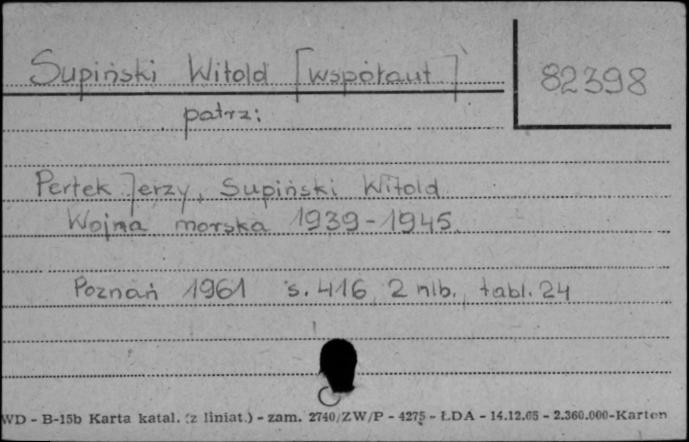 Supiński Witold [współaut.]
82398
patrz:
Pertek Jerzy, Supiński Witold
Wojna morska 1939-1945.
Poznań 1961 s. 416, 2 nlb., tabl. 24
WD - B-15b Karta katal. (z liniat.) - zam. 2740/ZW/P - 4275 - ŁDA - 14.12.65 - 2.360.000-Karton